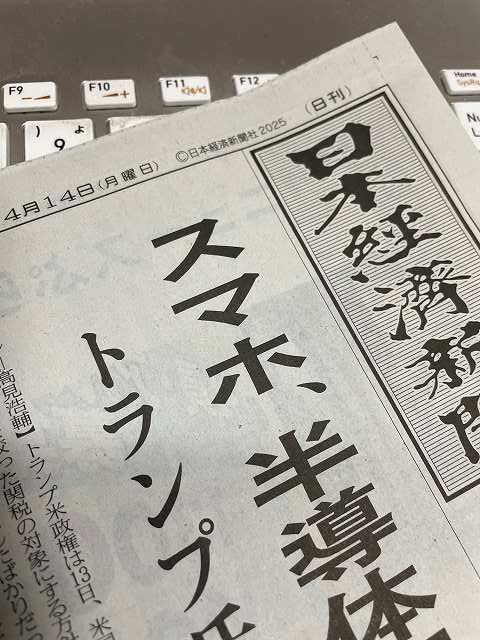 F9
F10
F11
F12
Home
)
9
ょ
4月14日(月曜日)
©日本経済新聞社2025
(日刊)
日本経済新聞
スマホ、半導体
トランプ氏
高見浩輔】トランプ米政権は13日、米
った関税の対象にする方
にばかりだっ